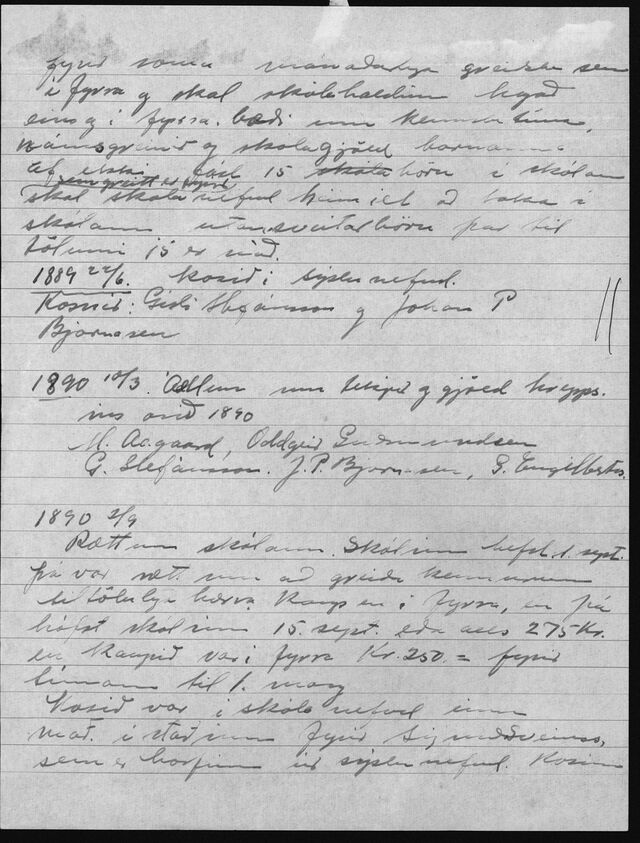 fyrir sama mánaðarlega greiðslu sem
í fyrra og skal skólahaldinu hagað
eins og í fyrra, bæði um kennslutíma,
námsgreinir og skólagjöld barnanna.
Ef ekki 15 skóla börn í skólann
sem greitt er fyrir
skal skólanefnd heimilt að taka í
skólann utansveitarbörn þar til
tölunni 15 er náð.
1889 22/6. Kosið í sýslunefnd.
Kosnir: Gísli Stefánsson og Jóhan P
Bjarnasen
1890 10/3. Áætlun um tekjur og gjöld hrepps-
ins árið 1890
M. Aagaard, Oddgeir Gudmundsen
G. Stefánsson. J. P. Bjarnasen, G. Engilberts.
1890 2/9
Rætt um skólann. Skólinn hefst 1. sept.
þá var rætt um að greiða kennurum
tiltölulega hærra kaup en í fyrra, en þá
hófst skólinn 15. sept. eða alls 275 Kr.
en kaupið var í fyrra Kr. 250.= fyrir
tímann til 1. marz
Kosið var í skólanefnd einn
mað. í staðinn fyrir
sem er horfinn úr sýslunefnd. Kosinn